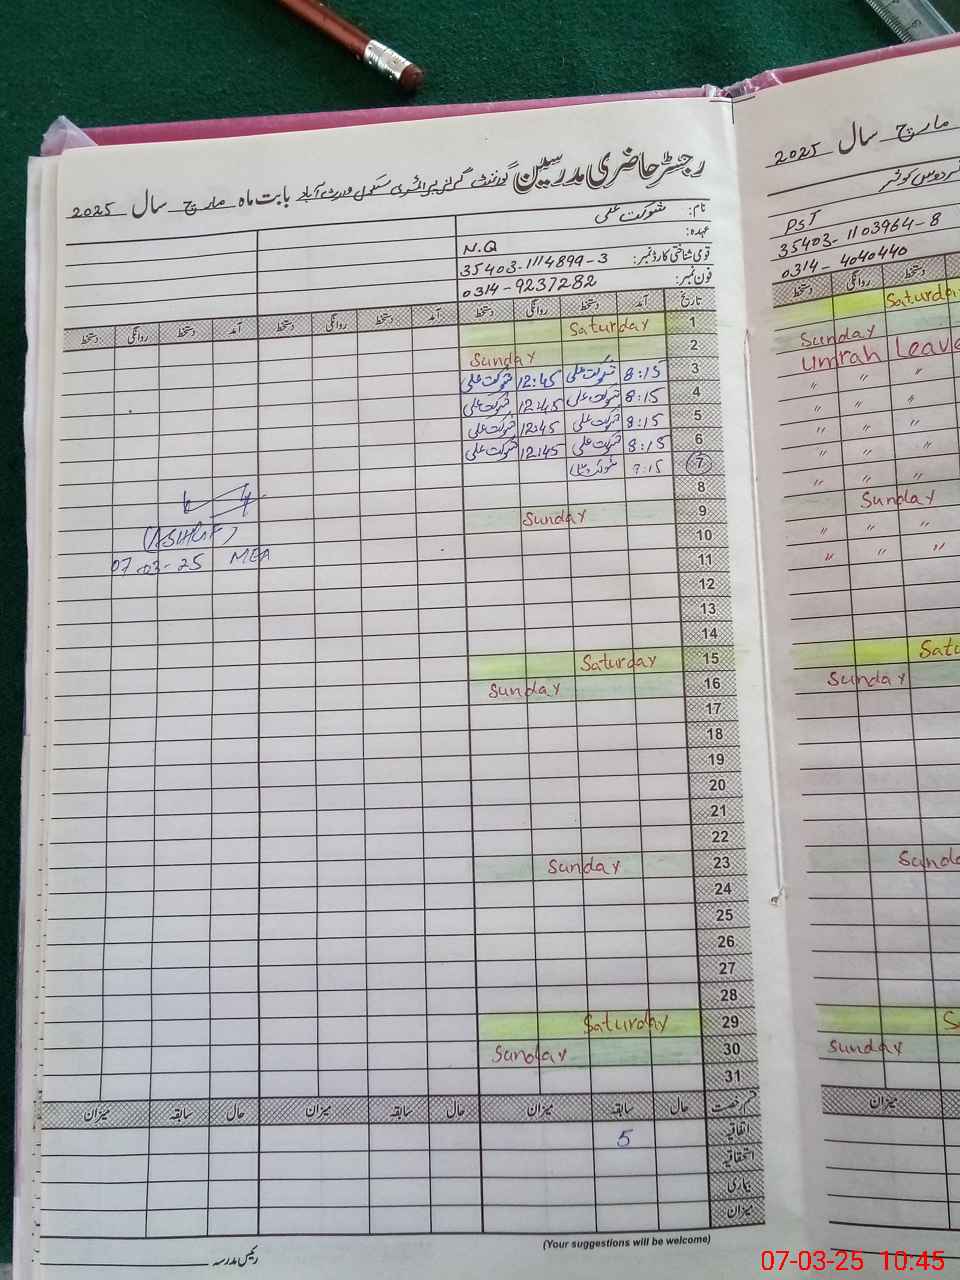 رجسٹر حاضری مدرسین گورنمنٹ گرلز پرائمری سکول بابت ماہ مارچ سال 2025
نام: شوکت علی
عہدہ: N.Q
قومی شناختی کارڈ نمبر: 35403-1114899-3
فون نمبر: 0314-9237282
تاریخ آمد دستخط روانگی دستخط آمد دستخط روانگی دستخط آمد دستخط روانگی دستخط
1 Saturday
2 Sunday
3 8:15 شوکت علی 12:45 شوکت علی
4 8:15 شوکت علی 12:45 شوکت علی
5 8:15 شوکت علی 12:45 شوکت علی
6 8:15 شوکت علی 12:45 شوکت علی
7 8:15 شوکت علی
8
9 Sunday
10
11
12
13
14
15 Saturday
16 Sunday
17
18
19
20
21
22
23 Sunday
24
25
26
27
28
29 Saturday
30 Sunday
31
قسم رخصت حال سابقہ میزان حال سابقہ میزان حال سابقہ میزان
اتفاقیہ 5
استحقاقیہ
بیماری
میزان
رئیس مدرسہ
(Your suggestions will be welcome)
07-03-25 MEA
مارچ سال 2025
PST
35403-1103964-8
0314-4040440
دستخط روانگی دستخط
Saturday
Sunday
Umrah Leave
" " "
" " "
" " "
" " "
" " "
Sunday
" " "
" " "
Satu
Sunday
Sund
S
Sunday
میزان
07-03-25 10:45